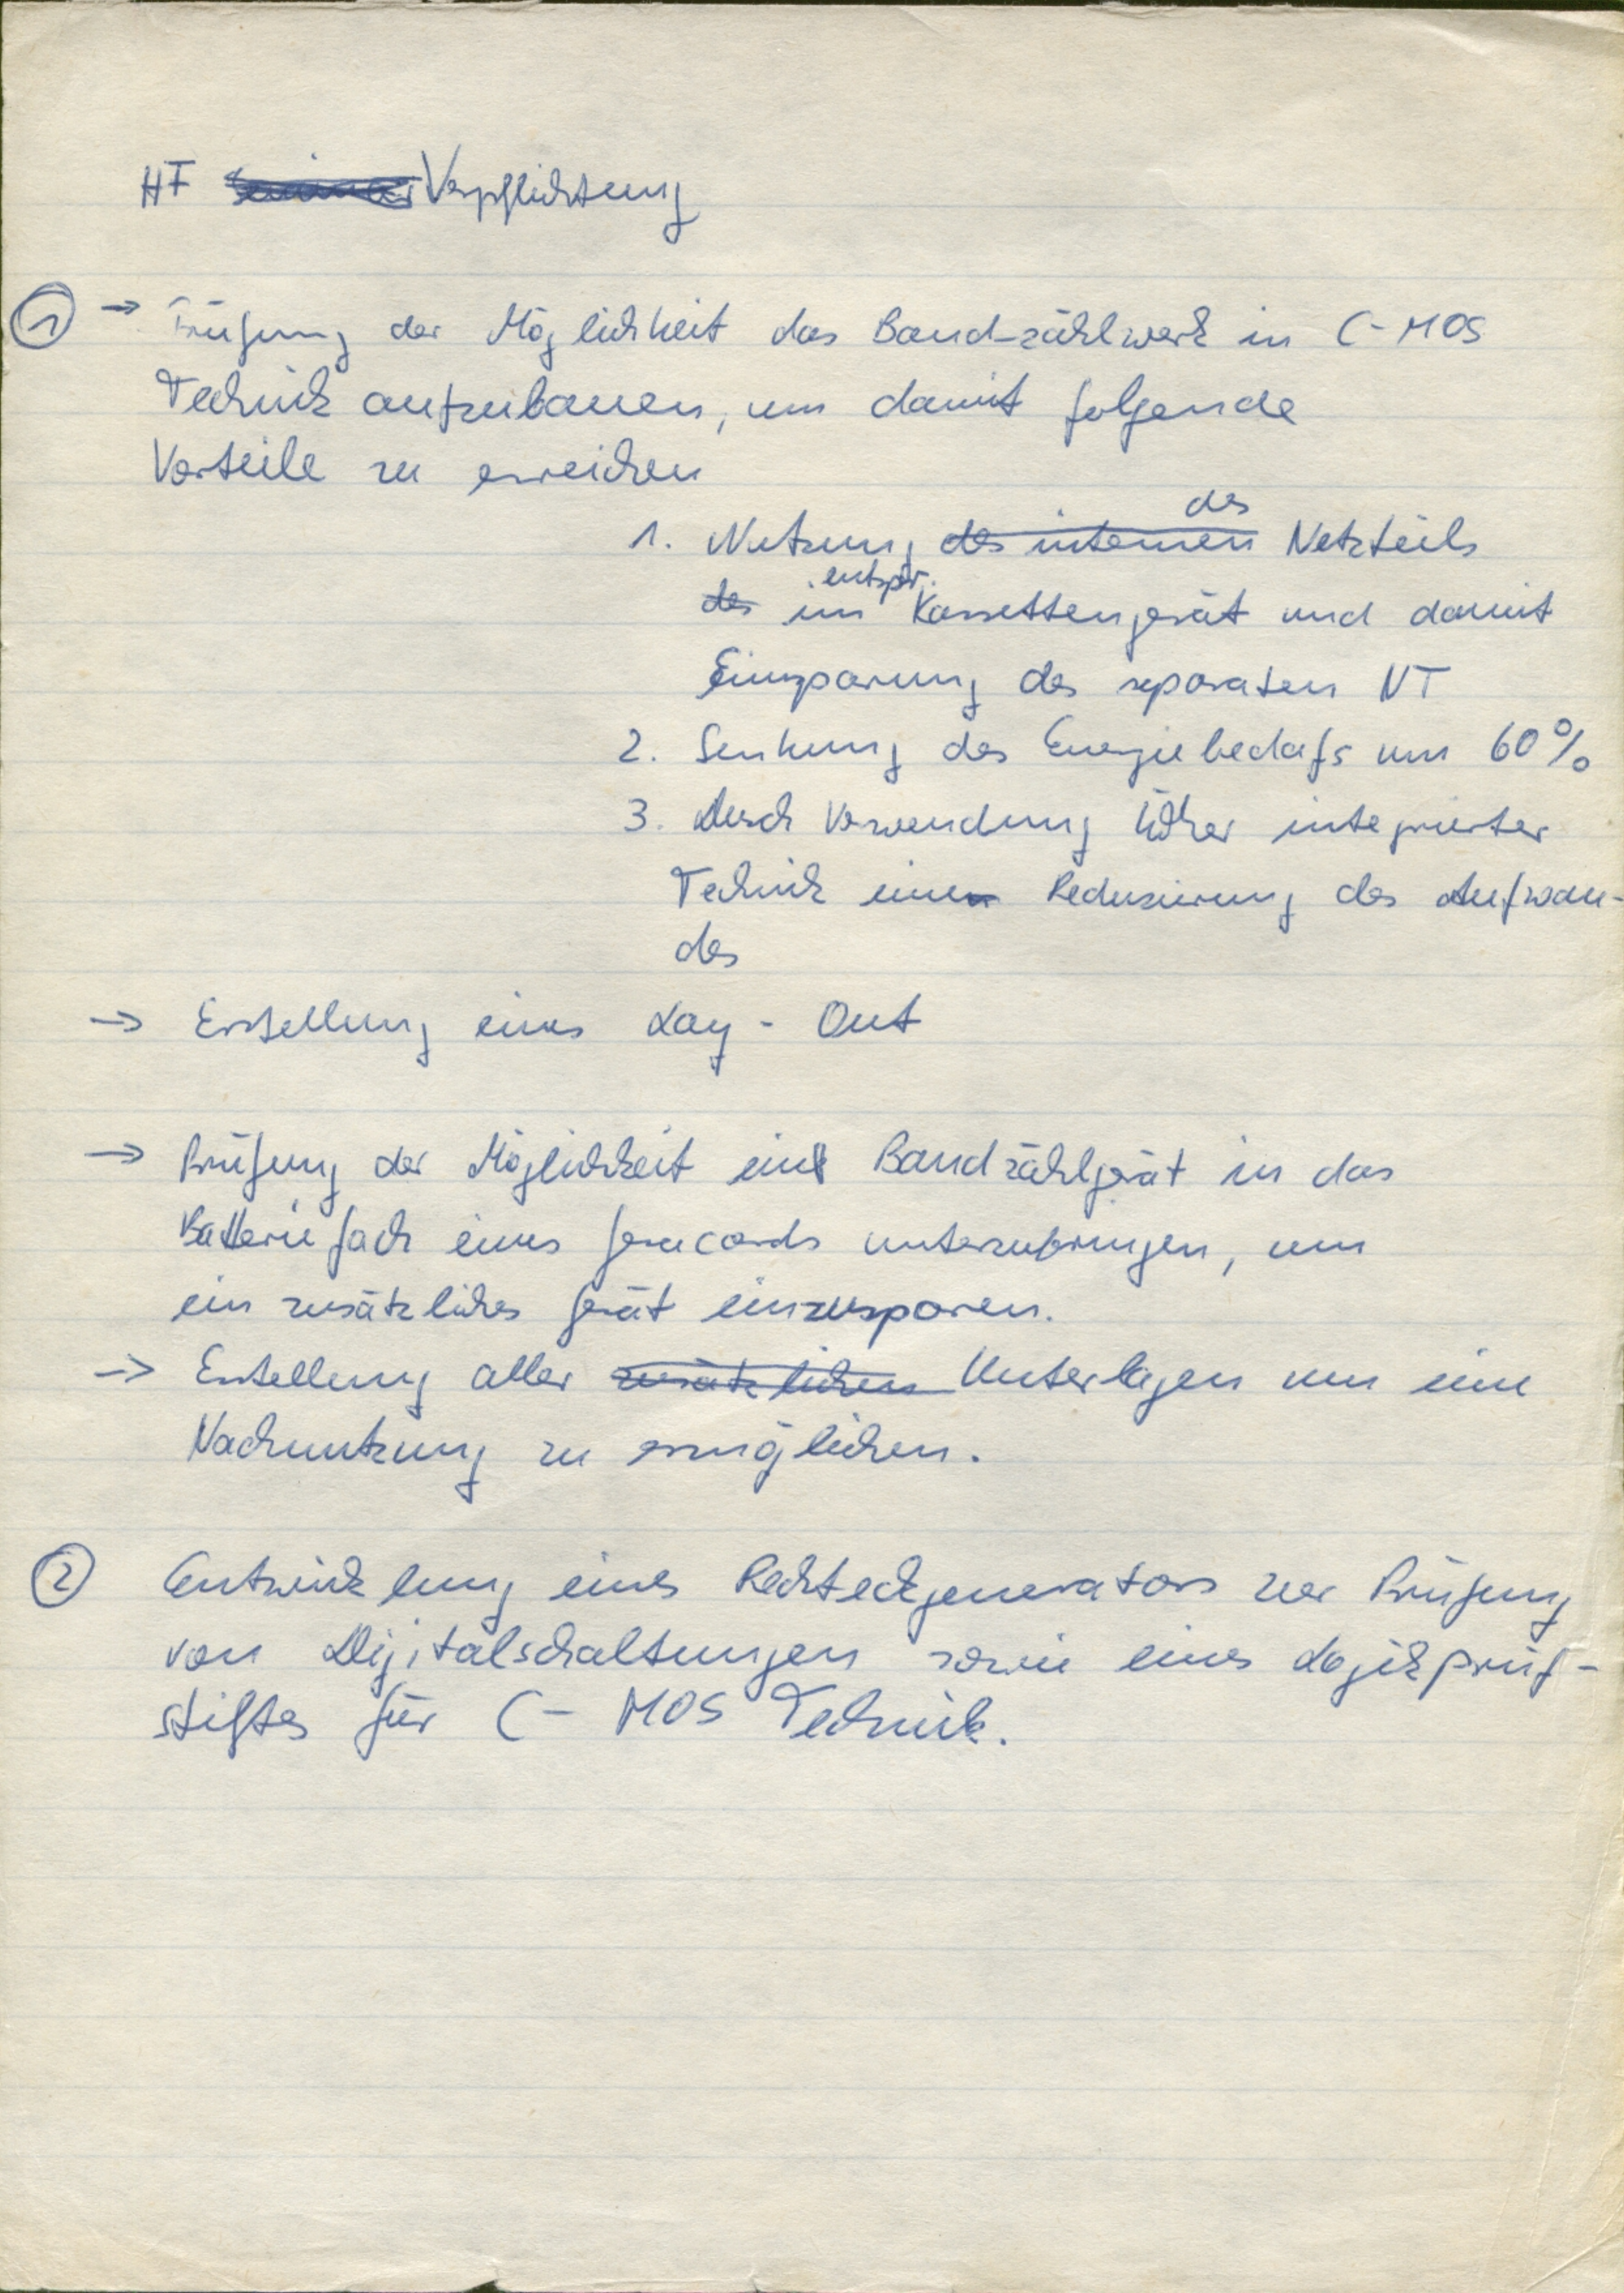 HF Verpflichtung
① → Prüfung der Möglichkeit das Band-zählwerk in C-MOS
Technik aufzubauen, um damit folgende
Vorteile zu erreichen
des
1. Nutzung des internen Netzteils
entspr.
des im Kassettengerät und damit
Einsparung des separaten NT
2. Senkung des Energiebedafs um 60%
3. Durch Verwendung höher integrierter
Technik eine Reduzierung des Aufwan-
des
→ Erstellung eines Lay-Out
→ Prüfung der Möglichkeit ein Bandzählgerät in das
Batteriefach eines Geracords unterzubringen, um
ein zusätzliches Gerät einzusparen.
→ Erstellung aller zusätzlichen Unterlagen um eine
Nachnutzung zu ermöglichen.
② Entwicklung eines Rechteckgenerators zur Prüfung
von Digitalschaltungen sowie eines Logikprüf-
stiftes für C-MOS Technik.